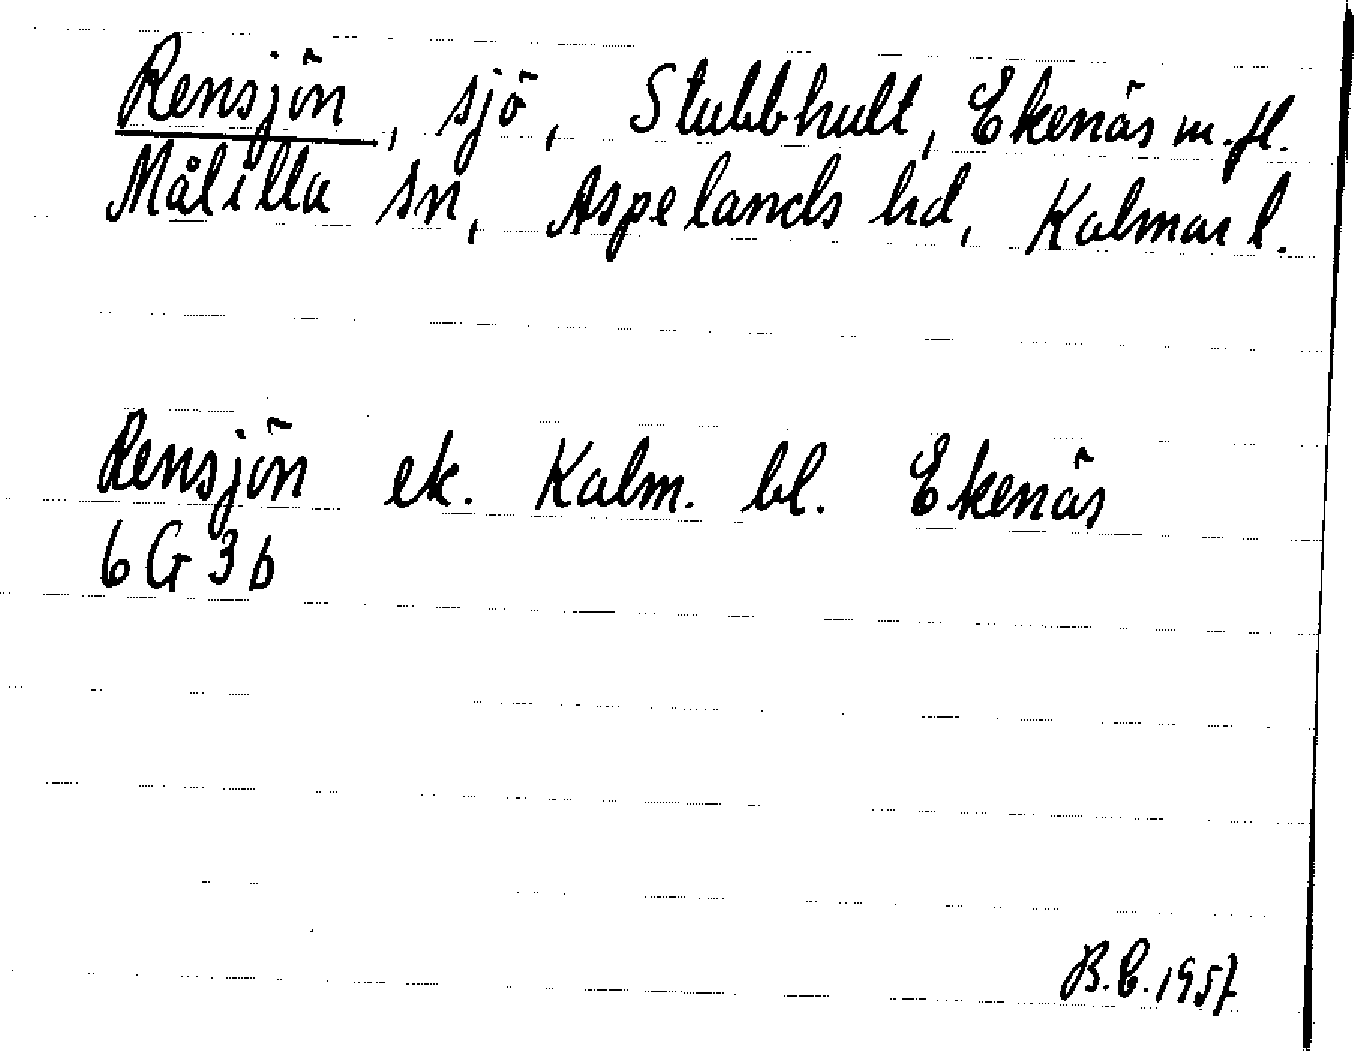 Rensjön, sjö, Stubbhult, Ekenäs m.fl.
Målilla sn, Aspelands hd, Kalmar l.
Rensjön ek. Kalm. bl. Ekenäs
6G3b
B.E. 1957